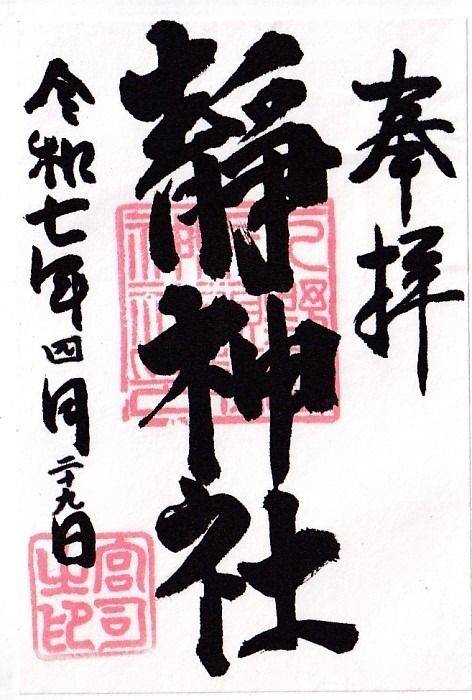 奉拝
靜神社
令和七年四月二十九日
宮司之印